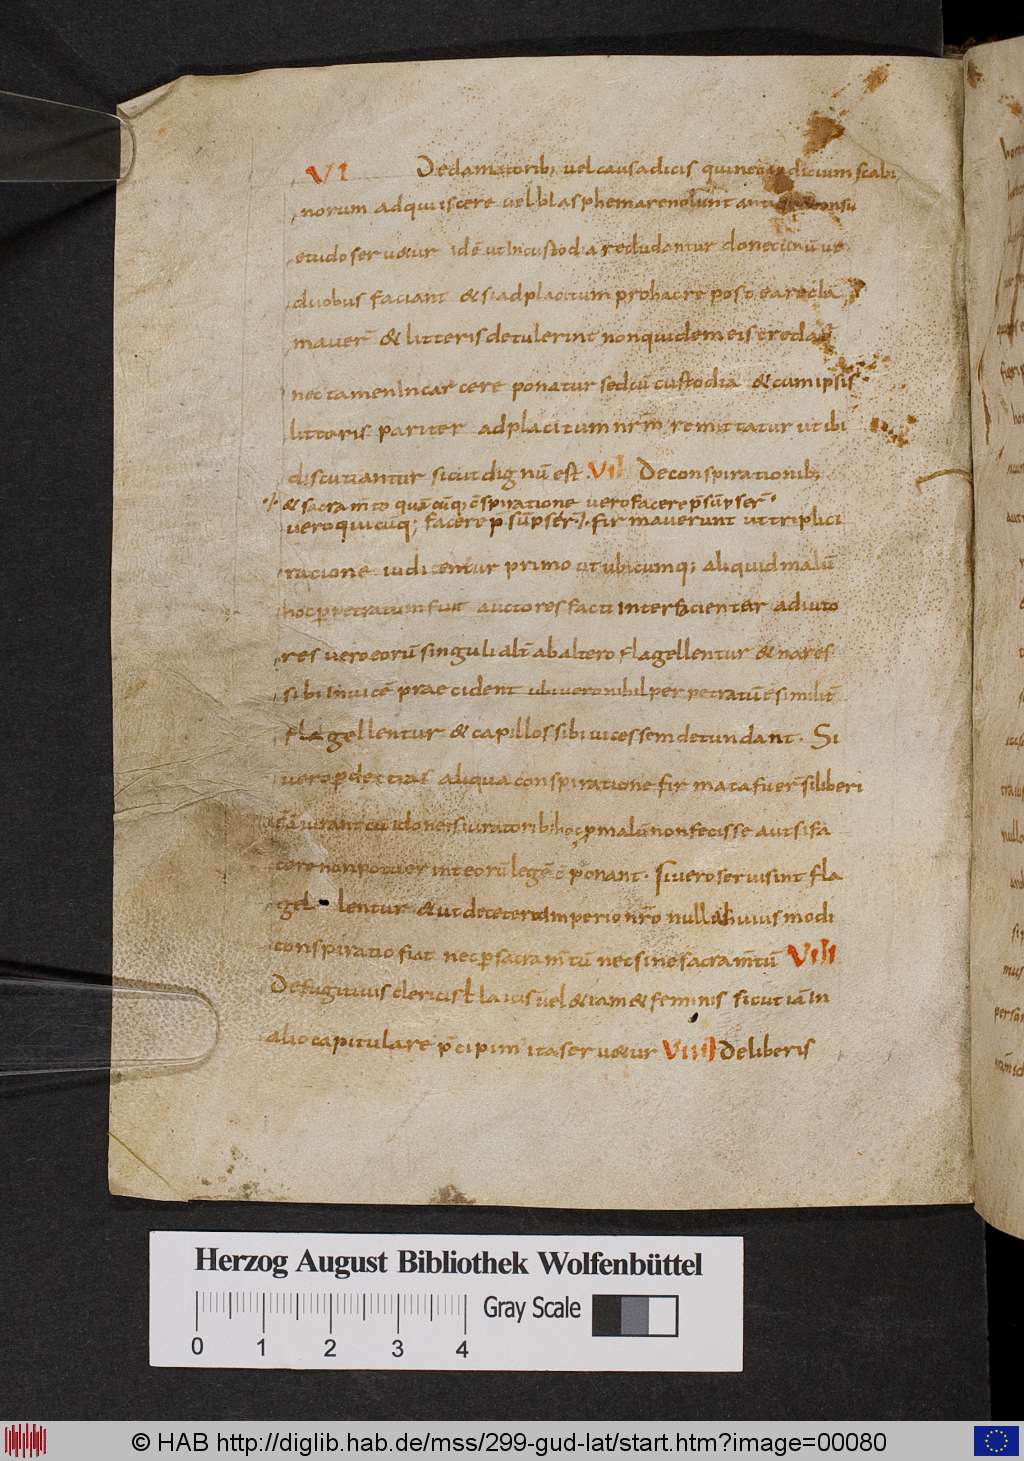 VI De clamatorib; vel causadicis qui nec iudicium scabi
norum adquiescere vel blasphemare nolunt antiqua consu
etudo servetur id ē ut in custodia recludantur donec unū ve
duobus faciant & si ad placitum pro hac re post ea recla
maver̄ & litteris detulerint non quidem eis creda&
nec tamen in carcere ponatur sed cū custodia & cum ipsis
litteris pariter ad placitum nr̄m remittatur ut ibi
discutiantur sicut dignū est. VII De conspirationib;
·/· & sacram̄to quācūq; c̄spiratione vero facere p̄sūpser̄·
vero quicūq; facere p̄sūpser̄·/· firmaverunt ut triplici
racione iudicentur primo ut ubicumq; aliquid malū
hoc perpetratum fuit auctores facti interfacienter adiuto
res vero eorū singuli alt̄ ab altero flagellentur & nares
sibi invicē praecident ubi vero nihil perpetratū ē similit̄
flagellentur & capillos sibi vicessem detundant. Si
vero p dextras aliqua conspiratione firmata fuer̄ si liberi
s̄ aut iurant cū idoneis iuratorib; hoc p malū non fecisse aut si fa
cere non potuerint eorū legē c̄ponant. Si vero servi sint fla
gel lentur & ut de cetero in imperio nr̄o nulla huiusmodi
conspiratio fiat nec p sacram̄tū nec sine sacram̄tū VIII
De fugitivis clericis ł laicis vel etiam & feminis sicut iā in
alio capitulare p̄cipim' ita servetur VIIII De liberis
Herzog August Bibliothek Wolfenbüttel
Gray Scale
0 1 2 3 4
© HAB http://diglib.hab.de/mss/299-gud-lat/start.htm?image=00080